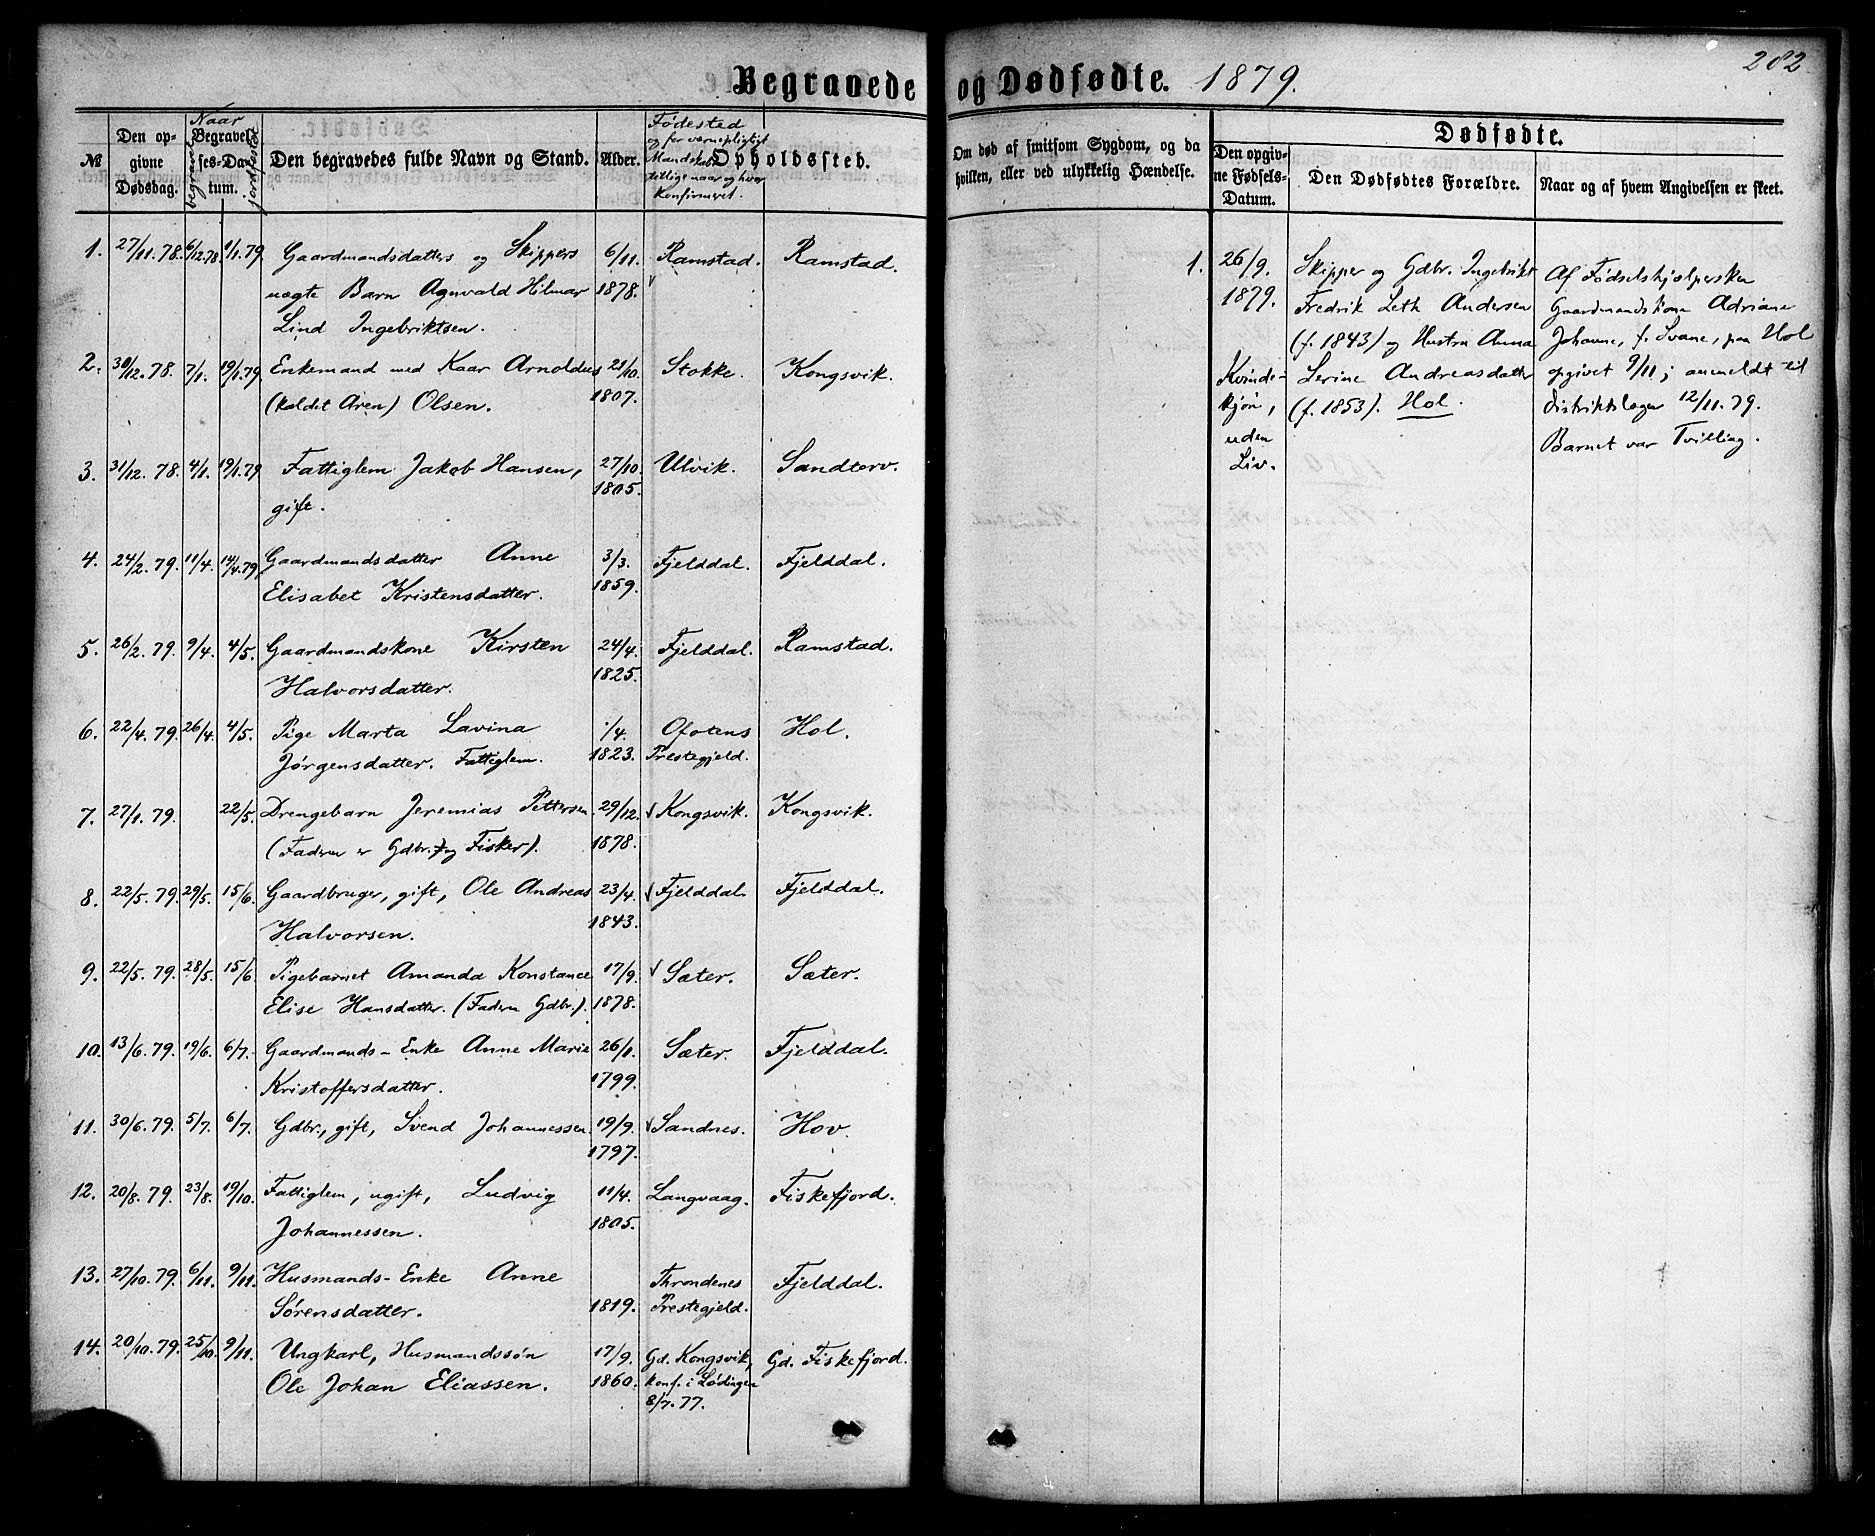 282
Begravede og Dødfødte. 1879.
№
Den opgivne Dødsdag.
Naar
Begravelses-Datum.
begravet
jordfæstet
Den begravedes fulde Navn og Stand.
Alder.
Fødested
og for værnepligtigt
Mandskab
tillige naar og hvor
konfirmeret.
Opholdssted.
Om død af smitsom Sygdom, og da
hvilken, eller ved ulykkelig Hændelse.
Dødfødte.
Den opgivne Fødsels-Datum.
Den Dødfødtes Forældre.
Naar og af hvem Angivelsen er skeet.
1. 27/11. 78. 6/12.78. 1/1.79. Gaardmandsdatters og Skippers 6/11. Ramstad. Ramstad.
uægte Barn Agnvald Hilmar 1878.
Lind Ingebriktsen.
2. 30/12. 78. 7/1. 19/1.79. Enkemand med Kaar Arnoldus 21/10. Stokke. Kongsvik.
(kaldet Aren) Olsen. 1807.
3. 31/12. 78. 4/1. 19/1.79 Fattiglem Jakob Hansen, 27/10. Ulvik. Sandterv.
gift. 1805.
4. 24/2. 79. 11/4. 14/4.79 Gaardmandsdatter Anne 3/3. Fjelddal. Fjelddal.
Elisabet Kristensdatter. 1859.
5. 26/2. 79. 9/4. 4/5. Gaardmandskone Kirsten 24/4. Fjelddal. Ramstad.
Halvorsdatter. 1825.
6. 22/4. 79. 26/4. 4/5. Pige Marta Lavina ·/4. Ofotens Hol.
Jørgensdatter. Fattiglem. 1823. Prestegjeld.
7. 27/1. 79. 22/5. Drengebarn Jeremias Pettersen 29/12. Kongsvik. Kongsvik.
(Faderen er Gdbr. og Fisker). 1878.
8. 22/5. 79. 29/5. 15/6. Gaardbruger, gift, Ole Andreas 23/4. Fjelddal. Fjelddal.
Halvorsen. 1843.
9. 22/5. 79. 28/5. 15/6 Pigebarnet Amanda Konstance 17/9. Sæter. Sæter.
Elise Hansdatter. (Faderen Gdbr.). 1878.
10. 13/6. 79. 19/6. 6/7. Gaardmands-Enke Anne Marie 26/1. Sæter. Fjelddal.
Kristoffersdatter. 1799.
11. 30/6. 79. 5/7. 6/7. Gdbr., gift, Svend Johannessen. 19/9. Sandnes. Hov.
1797.
12. 20/8. 79. 23/8. 19/10. Fattiglem, ugift, Ludvig 11/4. Langvaag. Fiskefjord.
Johannessen. 1805.
13. 27/10. 79. 6/11. 9/11. Husmands-Enke Anne Throndenes Fjelddal.
Sørensdatter. 1819. Prestegjeld.
14. 20/10. 79. 25/10. 9/11. Ungkarl, Husmandssøn 17/9. Gd. Kongsvik, Gd. Fiskefjord.
Ole Johan Eliassen. 1860. konf. i Lødingen
8/7. 77.
1. 26/9.
1879.
Kvinde-
kjøn,
uden
Liv.
Skipper og Gdbr. Ingebrikt
Fredrik Leth Andersen
(f. 1843) og Hustru Anna
Lerine Andreasdatter
(f. 1853). Hol.
Af Fødselshjælpersken
Gaardmandskone Adriane
Johanne, f. Svane, paa Hol
opgivet 9/11; anmeldt til
Distriktslægen 12/11. 79.
Barnet var Tvilling.